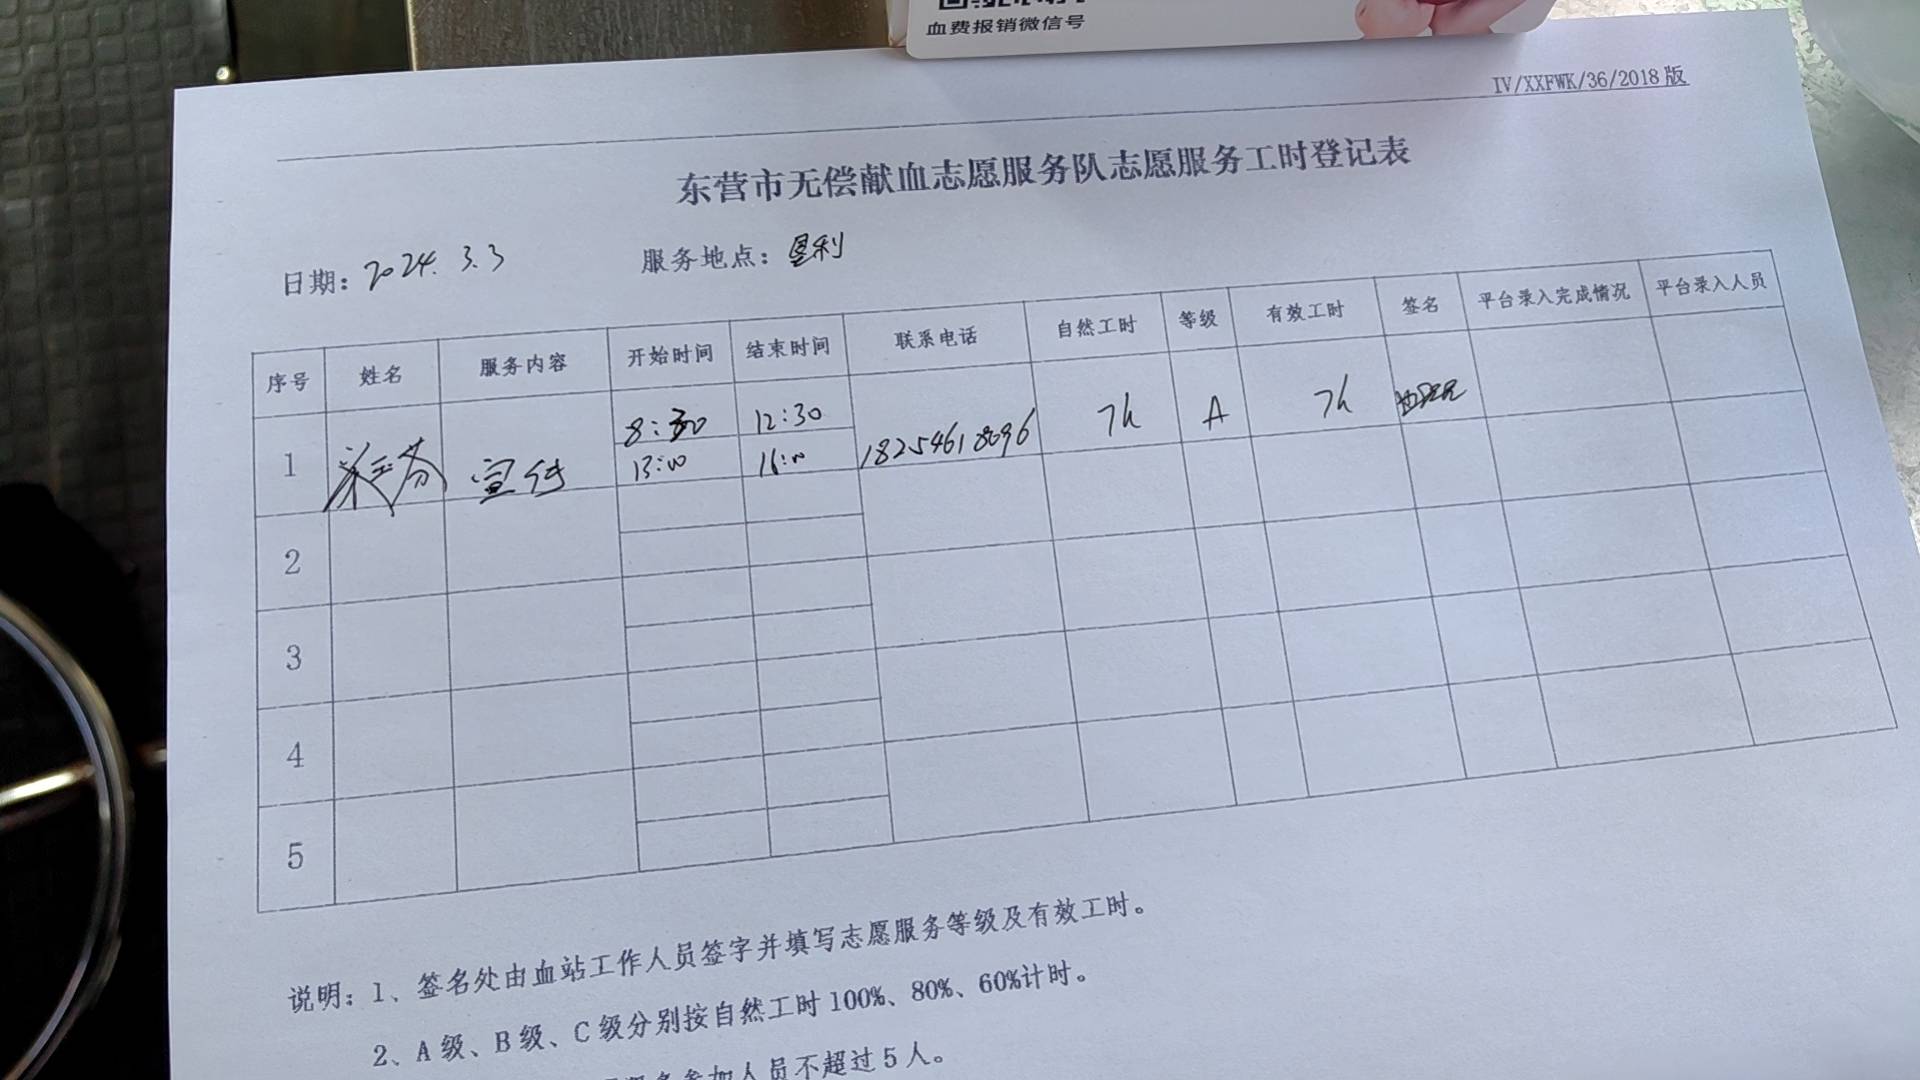 血费报销微信号
IV/XXFWK/36/2018版
东营市无偿献血志愿服务队志愿服务工时登记表
日期: 2024. 3. 3 服务地点: 垦利
序号 姓名 服务内容 开始时间 结束时间 联系电话 自然工时 等级 有效工时 签名 平台录入完成情况 平台录入人员
1 宣传 8:30 12:30 18254618096 7h A 7h
13:00 16:00
2
3
4
5
说明: 1、签名处由血站工作人员签字并填写志愿服务等级及有效工时。
2、A级、B级、C级分别按自然工时100%、80%、60%计时。
参加人员不超过5人。